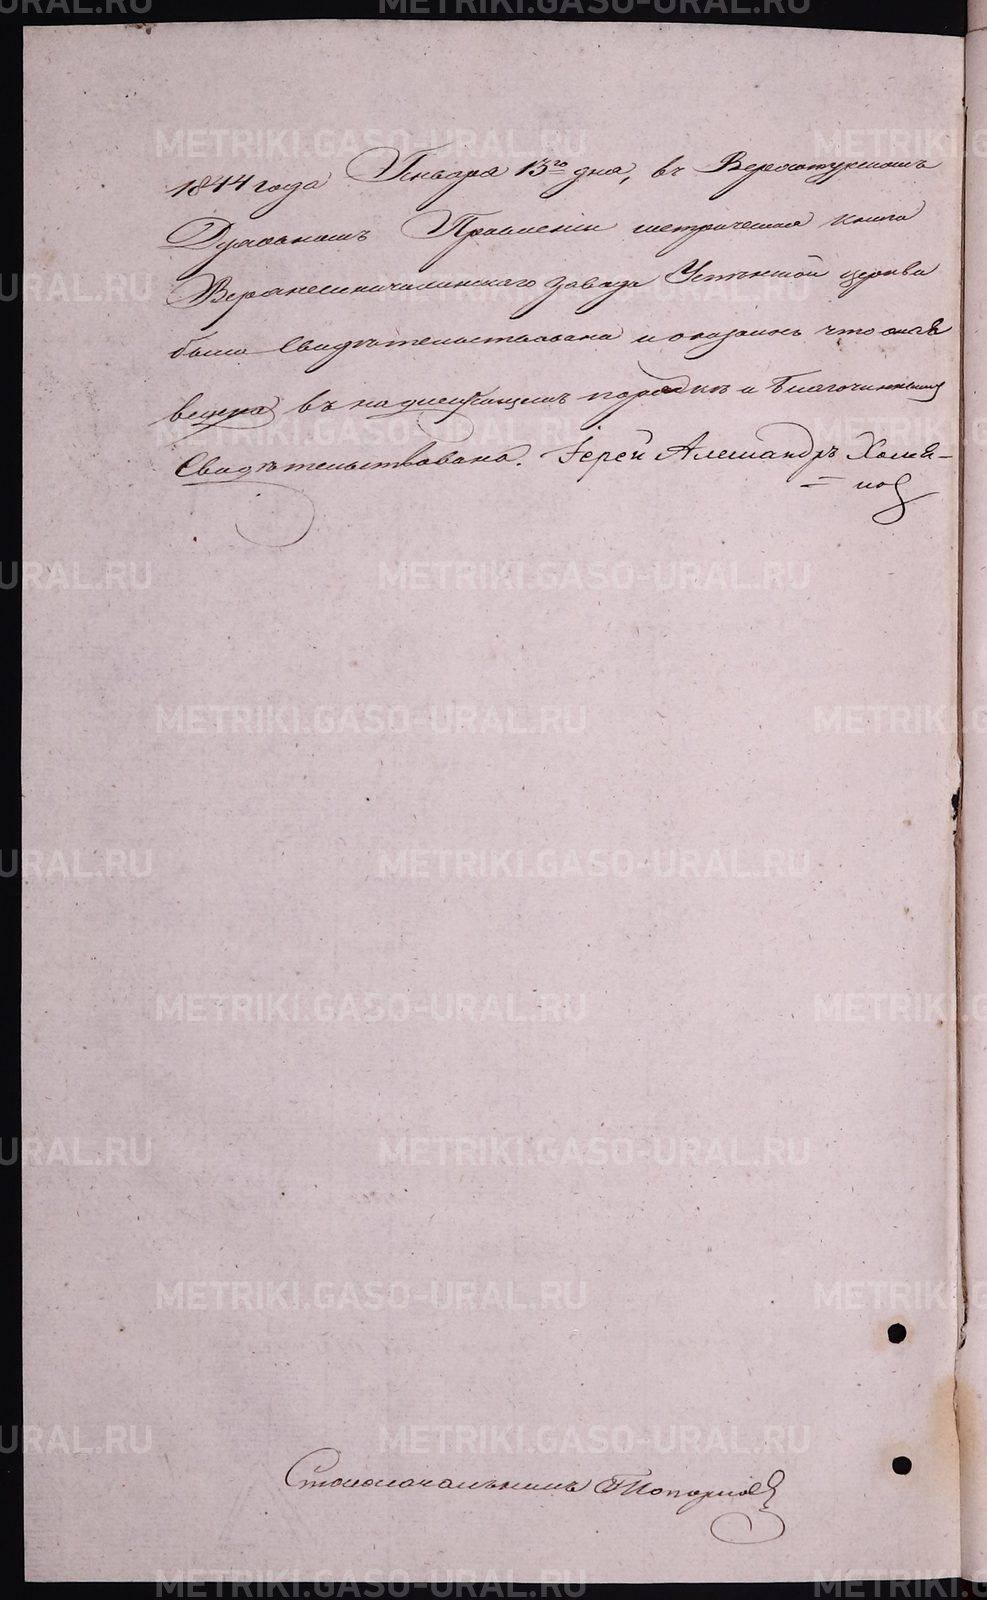 METRIKI.GASO-URAL.RU
1844 года Генваря 13го дня, въ Верхотурскомъ
Духовномъ Правленіи метрическая книга
Верхнесинячихинскаго завода Успенской церкви
была Свидѣтельствована и оказалось что оная
ведена въ надлежащемъ порядкѣ и Благочиннымъ
Свидѣтельствована. Іерей Александръ Хомя-
ковъ
Столоначальникъ Топорковъ